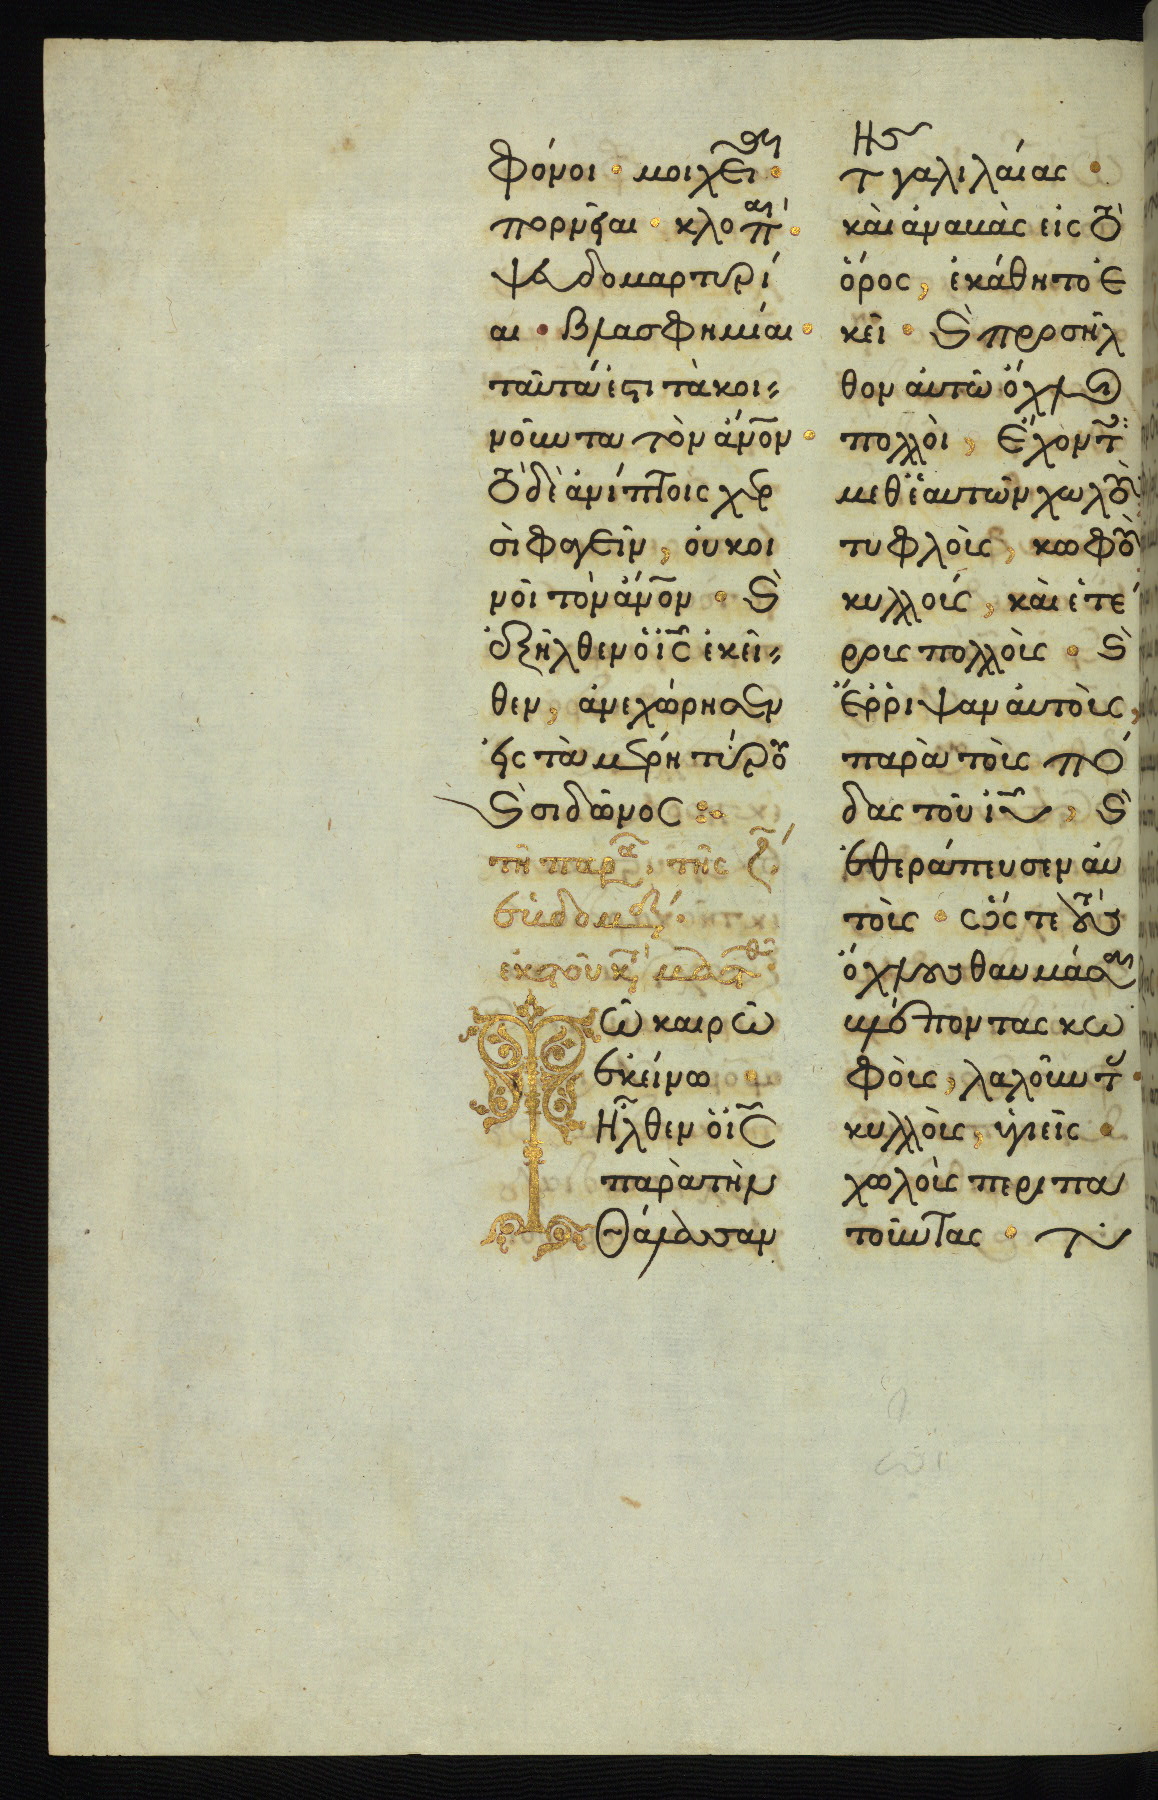 φόνοι · μοιχεῖαι ·
πορνεῖαι · κλοπαί ·
ψευδομαρτυρί
αι · βλασφημίαι ·
ταῦτά ἐστι τὰ κοι
νοῦντα τὸν ἄνον ·
τὸ δὲ ἀνίπτοις χερ
σὶ φαγεῖν, οὐ κοι
νοῖ τὸν ἄνον · καὶ
ἐξῆλθεν ὁ ις ἐκεῖ
θεν, ἀνεχώρησεν
εἰς τὰ μέρη τύρου
καὶ σιδῶνος :·
τῆ παρα, τῆς ζ
ἑβδομάδ·
ἐκ τοῦ κατὰ ματθ
Τῶ καιρῶ
ἐκείνω ·
Ἦλθεν ὁ ις
παρὰ τὴν
θάλασσαν
της γαλιλαίας ·
καὶ ἀναβὰς εἰς τὸ
ὄρος, ἐκάθητο ἐ
κεῖ · καὶ προσῆλ
θον αὐτῶ ὄχλοι
πολλοὶ, ἔχοντες
μεθ' ἑαυτῶν χωλοὺς
τυφλοὺς, κωφοὺς
κυλλούς, καὶ ἑτέ
ρους πολλοὺς · καὶ
ἔρριψαν αὐτοὺς,
παρὰ τοὺς πό
δας τοῦ ιυ, καὶ
ἐθεράπευσεν αὐ
τοὺς · ὥστε τοὺς
ὄχλους θαυμάσαι
βλέποντας κω
φοὺς, λαλοῦντας ·
κυλλοὺς, ὑγιεῖς ·
χωλοὺς περιπα
τοῦντας · τυ